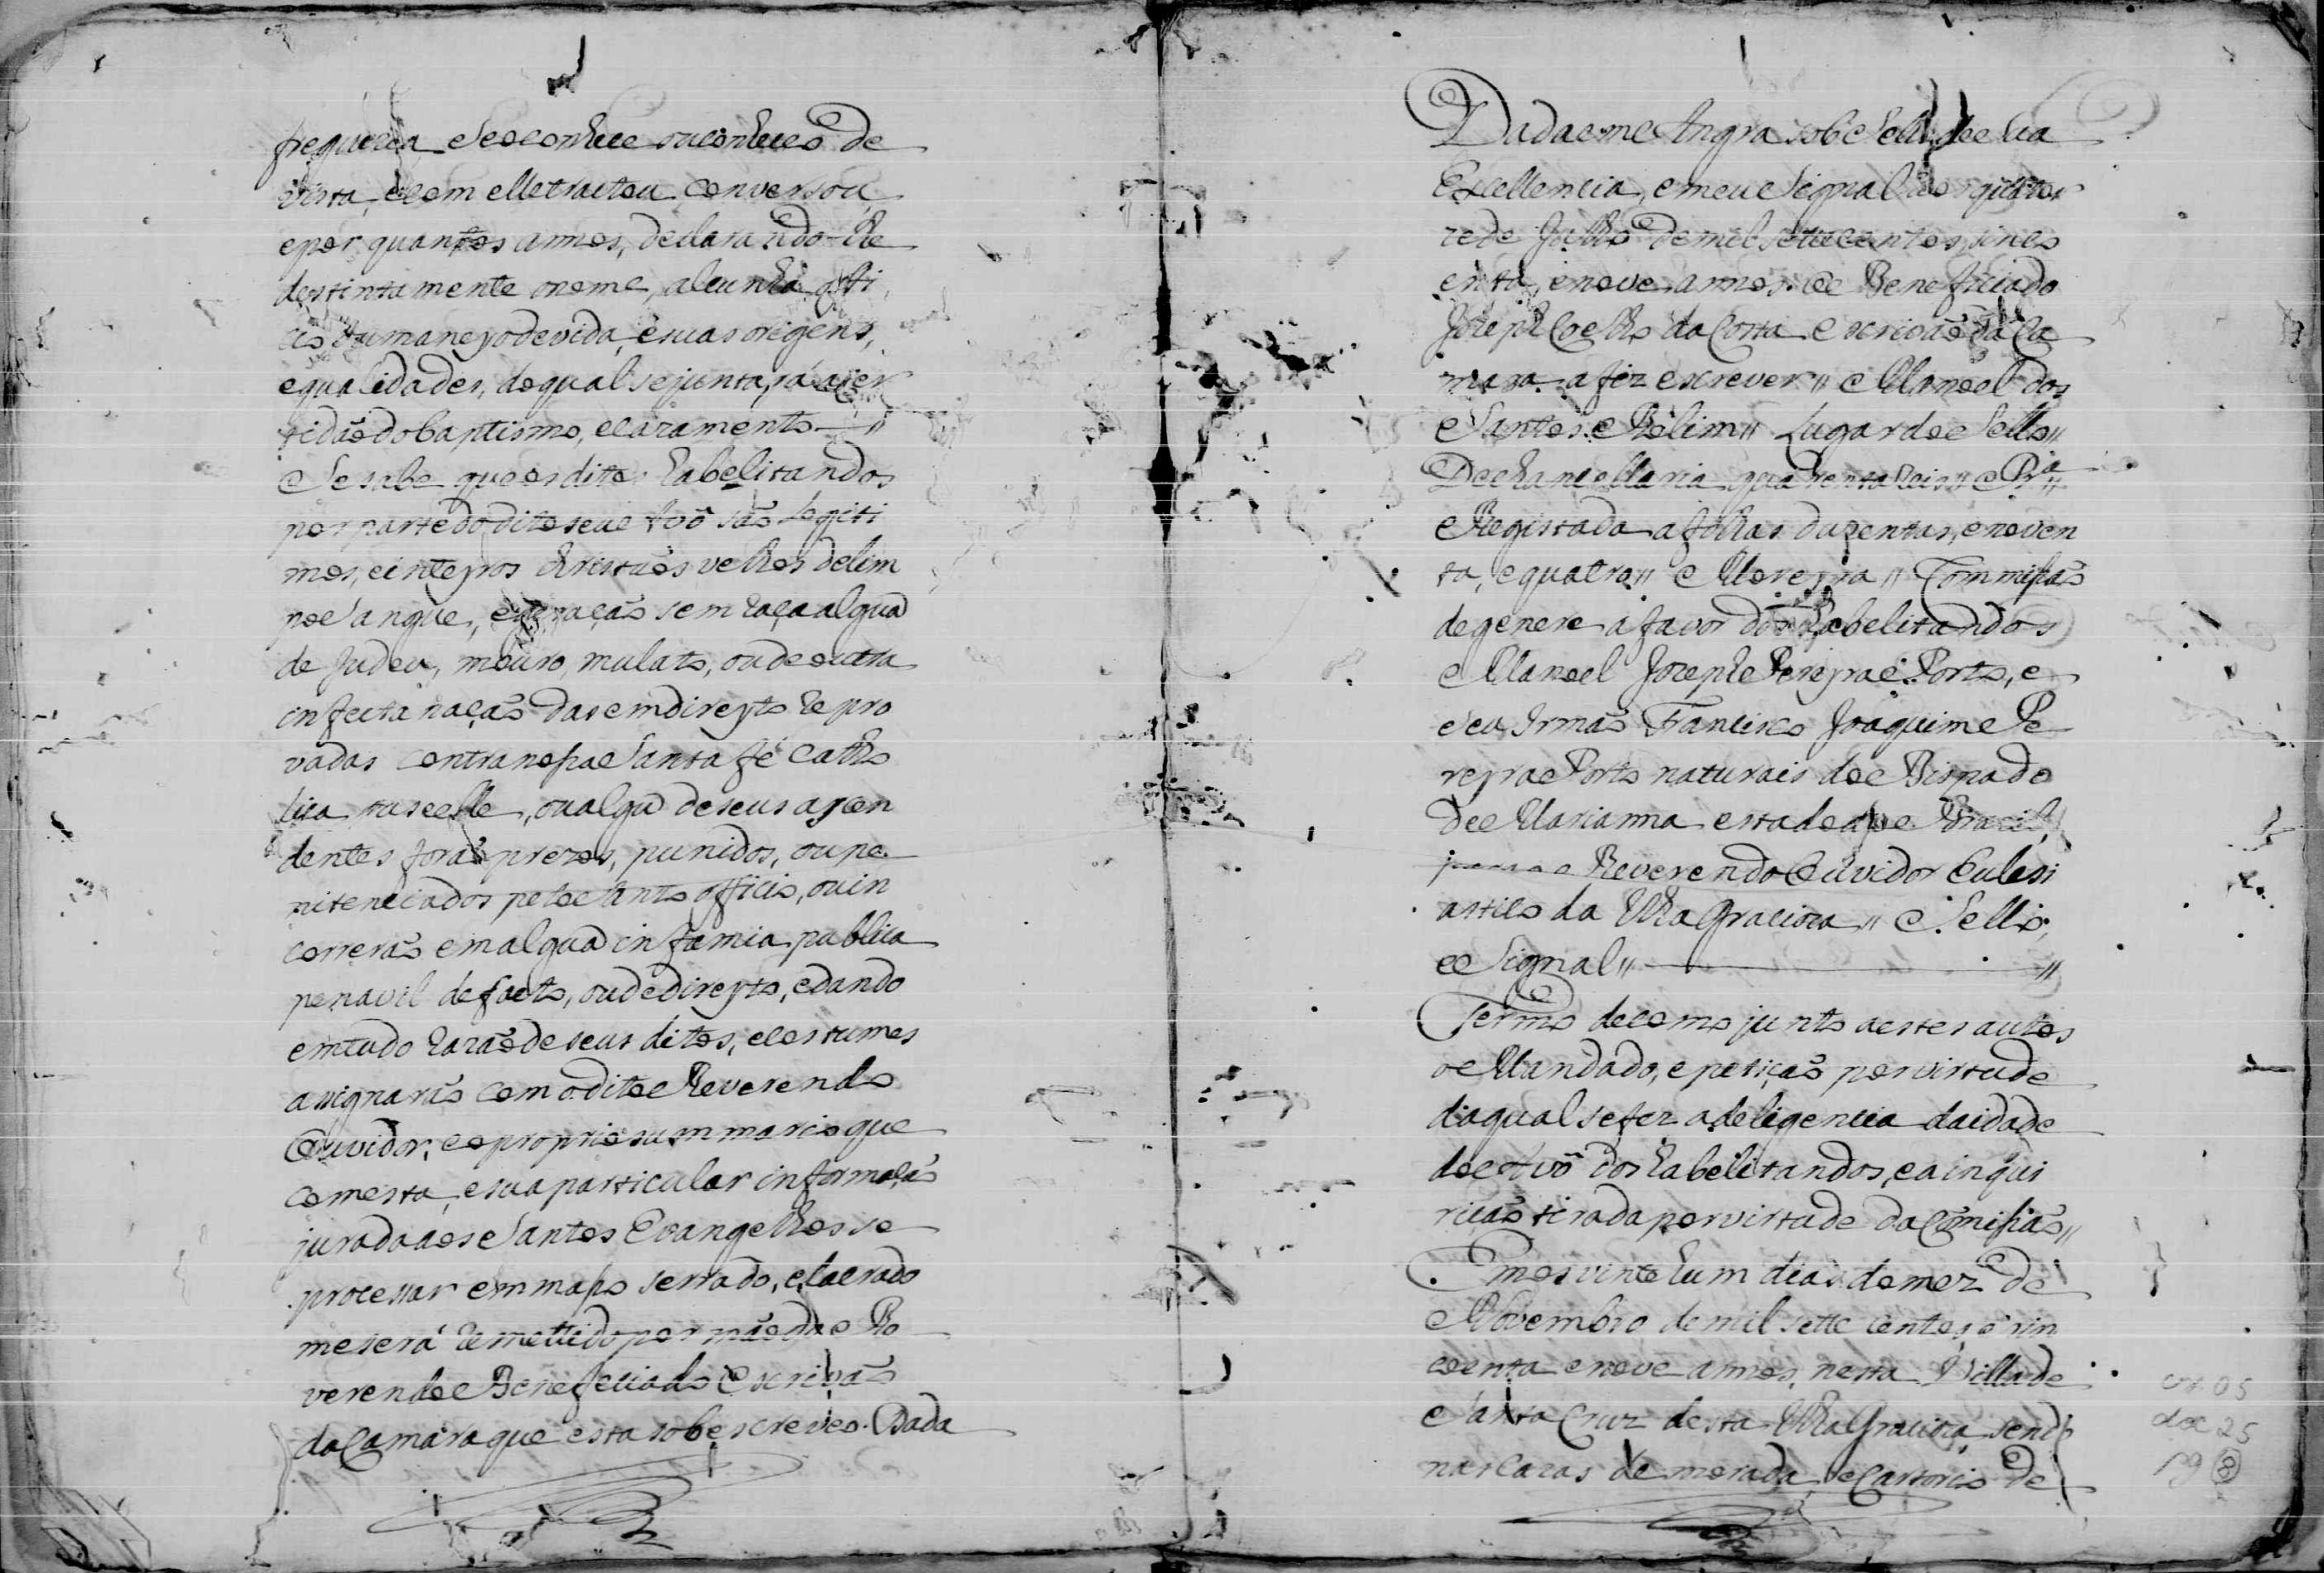 freguezia, e se o conhece ou conheceo de
vista, e com elle tractou, conversou,
e por quantos annos, declarando-lhe
destintamente o nome, alcunha, offi
cio humaneyo de vida, e suas origens,
e qualidades, do qual se junta, já a cer
tidaõ do baptismo, e cazamento —"
Se sabe que os ditos habelitandos
por parte do dito seu Avô saõ legiti
mos, e inteyros christaõs velhos de lim
po Sangue, e geraçaõ sem raça algua
de Judeu, mouro, mulato, ou de outra
infecta naçaõ das em direyto repro
vadas contra nossa Santa fé Catho
lica, ou se elle, ou algũ de seus ascen
dentes foraõ prezos, punidos, ou pe
nitenciados pelo Santo officio, ou in
correraõ em algua infamia publica
penavil de facto, ou de direyto, e dando
em tudo razaõ de seus ditos, e costumes
assignaraõ com o dito Reverendo
Ouvidor; e o proprio summario que
com esta, e sua particular informaçaõ
jurada aos Santos Evangelhos se
processar em masso serrado, e lacrado
me será remettido por maõ do Re
verendo Beneficiado Escrivaõ
da Camara que esta sobescreveo. Dada
Dada em Angra sob o Sello de Sua
Excellencia, e meu Signal aos quator
ze de Julho de mil settecentos, sinco
enta, e nove annos. O Beneficiado
Jozeph Coelho da Costa Escrivaõ da Ca
mara a fez escrever" Manoel dos
Santos Rolim" Lugar do Sello"
De chancellaria quarenta reis"
Registada a folhas duzentas, e noven
ta, e quatro" Moreyra" Commissaõ
de genere a favor dos habelitandos
Manoel Jozeph Pereyra Porto, e
seu Irmaõ Francisco Joaquim Pe
reyra Porto naturais do Bispado
de Marianna estado do Brasil,
Reverendo Ouvidor Eclesi
astico da Ilha Gracioza" Sello,
e Signal" — "
Termo de como junto a estes autos
o Mandado, e petiçaõ por virtude
da qual se fez a deligencia da idade
do Avô dos habelitandos, e a inqui
riçaõ tirada por virtude da Comissaõ"
Aos vinte hum dias do mez de
Novembro de mil sette centos e sin
coenta e nove annos, nesta Villa de
Santa Cruz desta Ilha Gracioza, sendo
nas Cazas de morada, e Cartorio de
cx. 05
doc 25
pg 8